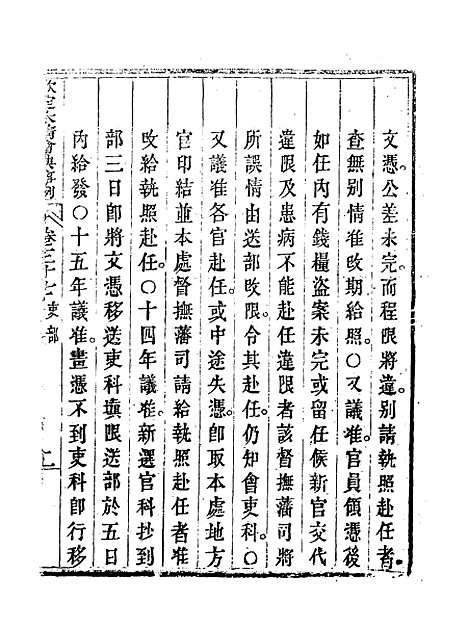 文憑公差未完而程限將違別請執照赴任者
查無別情准改期給照○又議准官員領憑後
如任內有錢糧盜案未完或留任候新官交代
違限及患病不能赴任違限者該督撫藩司將
所誤情由送部改限令其赴任仍知會吏科○
又議准各官赴任或中途失憑卽取本處地方
官印結並本處督撫藩司請給執照赴任者准
改給執照赴任○十四年議准新選官科抄到
部三日卽將文憑移送吏科塡限送部於五日
內給發○十五年議准豊憑不到吏科卽行移
欽定大淸會典事例 卷三十七 吏部